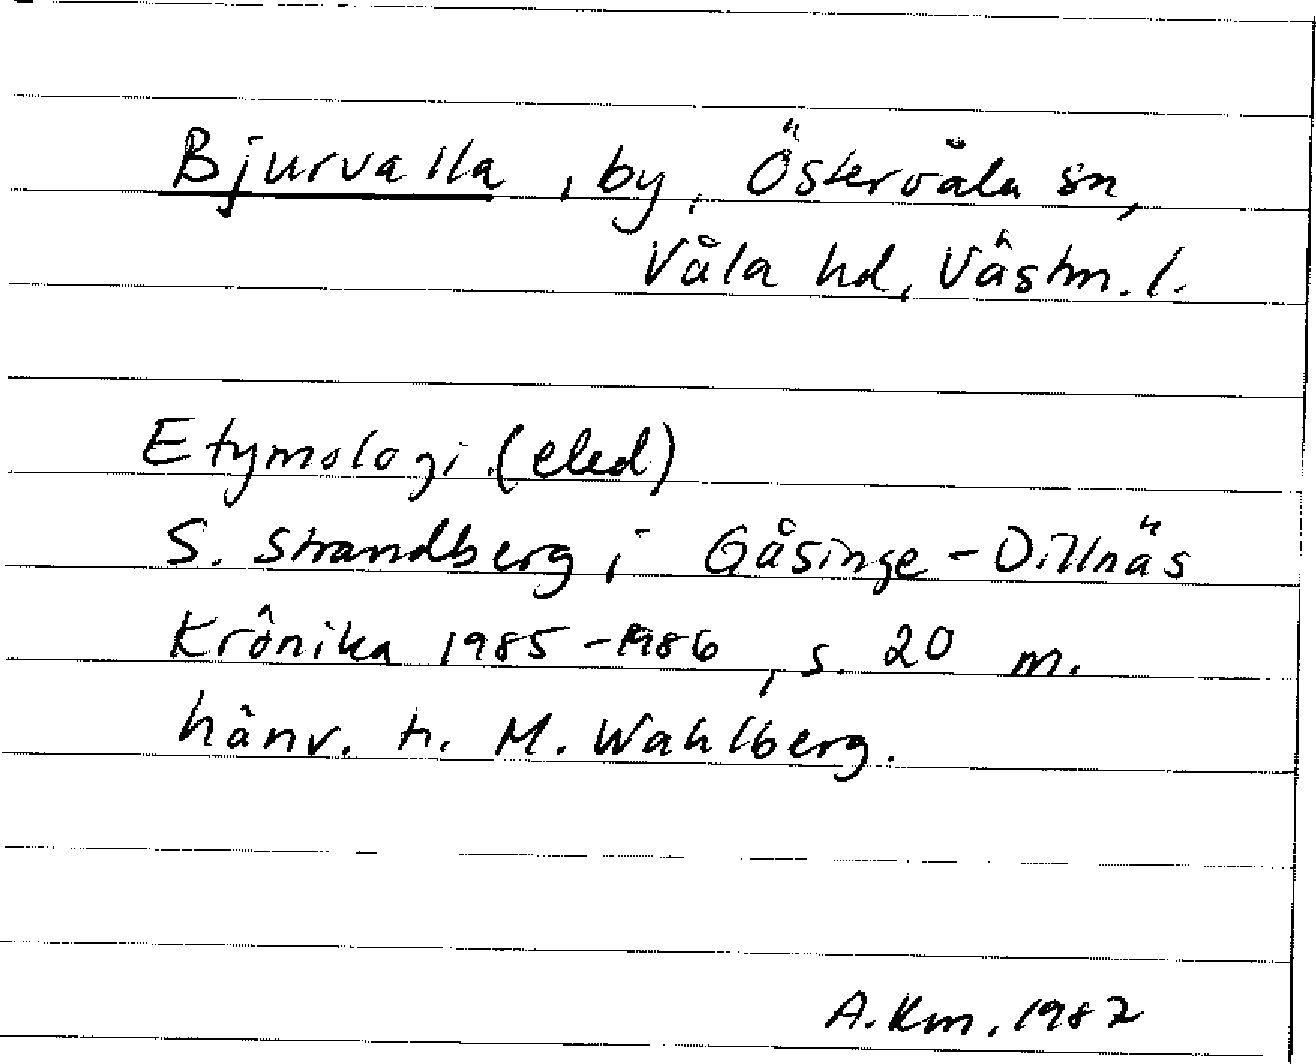 Bjurvalla, by, Östervåla sn,
Våla hd, Västm. l.
Etymologi (eled)
S. Strandberg i Gåsinge-Dillnäs
Krönika 1985-1986, s. 20 m.
hänv. t. M. Wahlberg.
A. Km. 1987